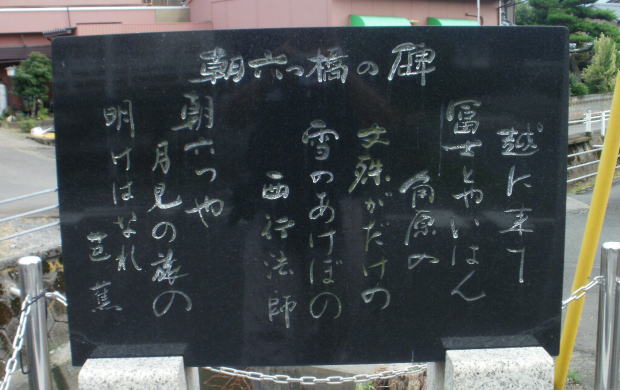 朝六つ橋の碑
越に来て
冨士とやいはん
角原の
文殊がだけの
雪のあけぼの
西行法師
朝六つや
月見の旅の
明けはなれ
芭蕉